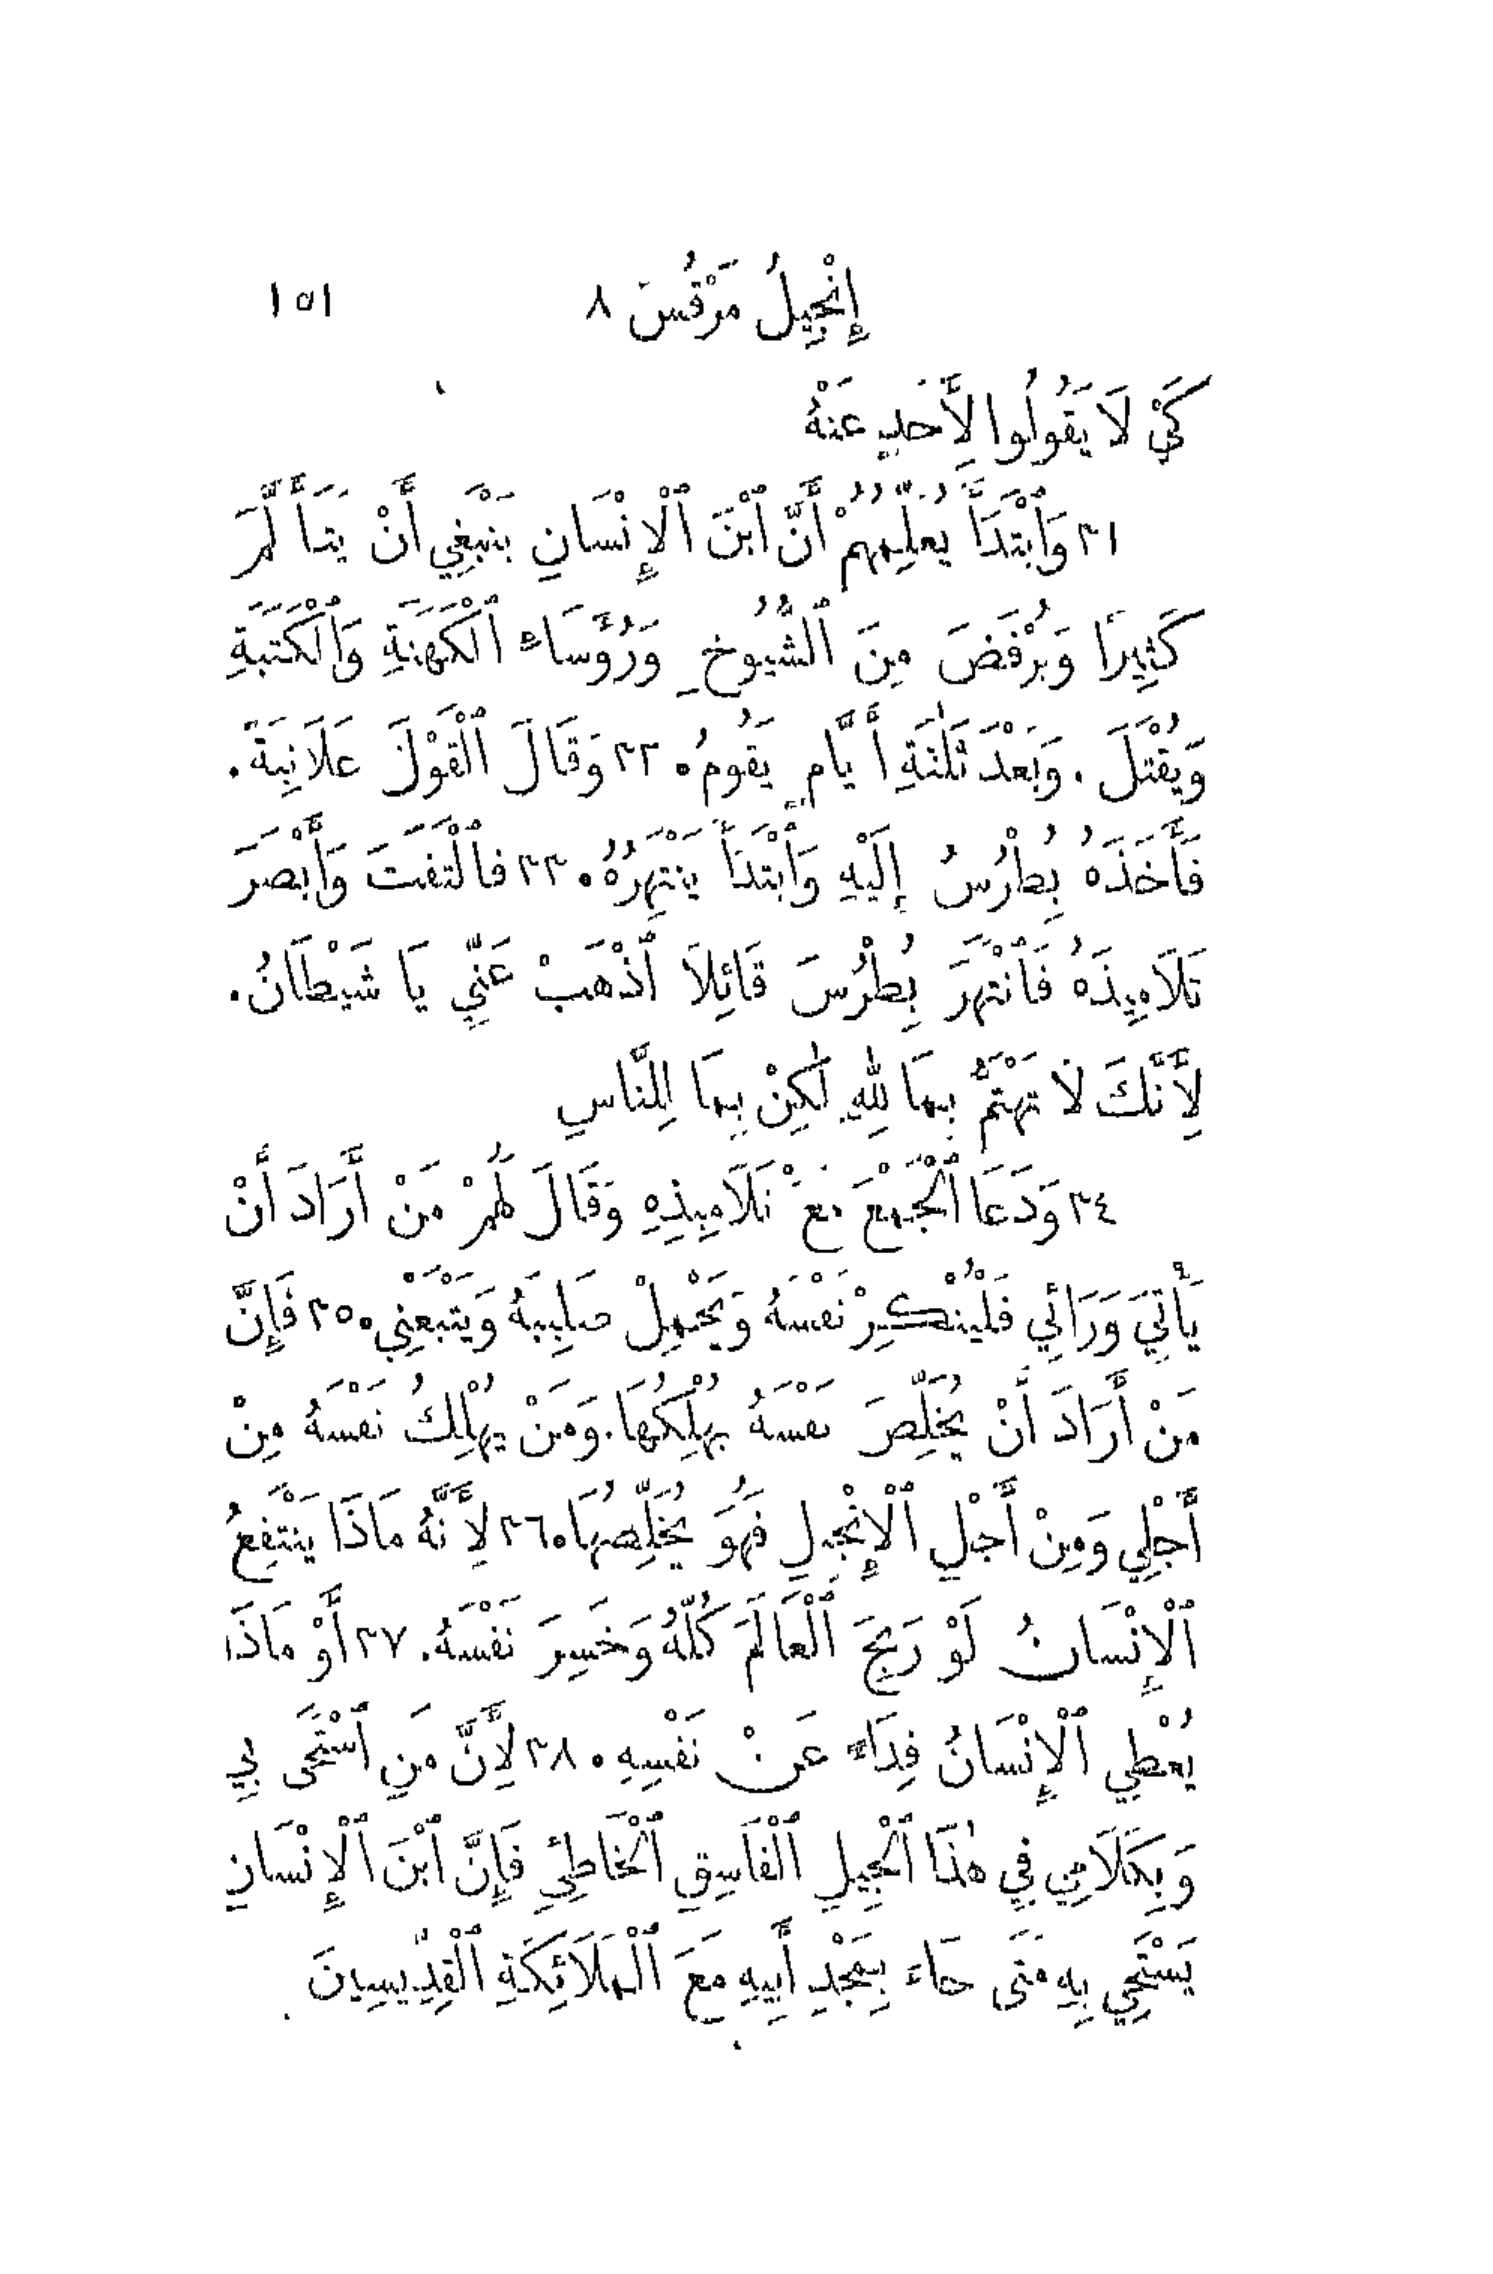 إِنْجِيلُ مَرْقُسَ ٨ ١٥١
كَيْ لَا يَقُولُوا لِأَحَدٍ عَنْهُ
٣١ وَٱبْتَدَأَ يُعَلِّمُهُمْ أَنَّ ٱبْنَ ٱلْإِنْسَانِ يَنْبَغِي أَنْ يَتَأَلَّمَ
كَثِيرًا وَيُرْفَضَ مِنَ ٱلشُّيُوخِ وَرُؤَسَاءِ ٱلْكَهَنَةِ وَٱلْكَتَبَةِ
وَيُقْتَلَ . وَبَعْدَ ثَلٰثَةِ أَيَّامٍ يَقُومُ ٠ ٣٢ وَقَالَ ٱلْقَوْلَ عَلَانِيَةً .
فَأَخَذَهُ بُطْرُسُ إِلَيْهِ وَٱبْتَدَأَ يَنْتَهِرُهُ ٠ ٣٣ فَٱلْتَفَتَ وَأَبْصَرَ
تَلَامِيذَهُ فَٱنْتَهَرَ بُطْرُسَ قَائِلًا ٱذْهَبْ عَنِّي يَا شَيْطَانُ .
لِأَنَّكَ لَا تَهْتَمُّ بِمَا لِلّٰهِ لٰكِنْ بِمَا لِلنَّاسِ
٣٤ وَدَعَا ٱلْجَمْعَ مَعَ تَلَامِيذِهِ وَقَالَ لَهُمْ مَنْ أَرَادَ أَنْ
يَأْتِيَ وَرَائِي فَلْيُنْكِرْ نَفْسَهُ وَيَحْمِلْ صَلِيبَهُ وَيَتْبَعْنِي ٠ ٣٥ فَإِنَّ
مَنْ أَرَادَ أَنْ يُخَلِّصَ نَفْسَهُ يُهْلِكُهَا . وَمَنْ يُهْلِكُ نَفْسَهُ مِنْ
أَجْلِي وَمِنْ أَجْلِ ٱلْإِنْجِيلِ فَهُوَ يُخَلِّصُهَا ٠ ٣٦ لِأَنَّهُ مَاذَا يَنْتَفِعُ
ٱلْإِنْسَانُ لَوْ رَبِحَ ٱلْعَالَمَ كُلَّهُ وَخَسِرَ نَفْسَهُ . ٣٧ أَوْ مَاذَا
يُعْطِي ٱلْإِنْسَانُ فِدَاءً عَنْ نَفْسِهِ ٠ ٣٨ لِأَنَّ مَنِ ٱسْتَحَى بِي
وَبِكَلَامِي فِي هٰذَا ٱلْجِيلِ ٱلْفَاسِقِ ٱلْخَاطِئِ فَإِنَّ ٱبْنَ ٱلْإِنْسَانِ
يَسْتَحِي بِهِ مَتَى جَاءَ بِمَجْدِ أَبِيهِ مَعَ ٱلْمَلَائِكَةِ ٱلْقِدِّيسِينَ